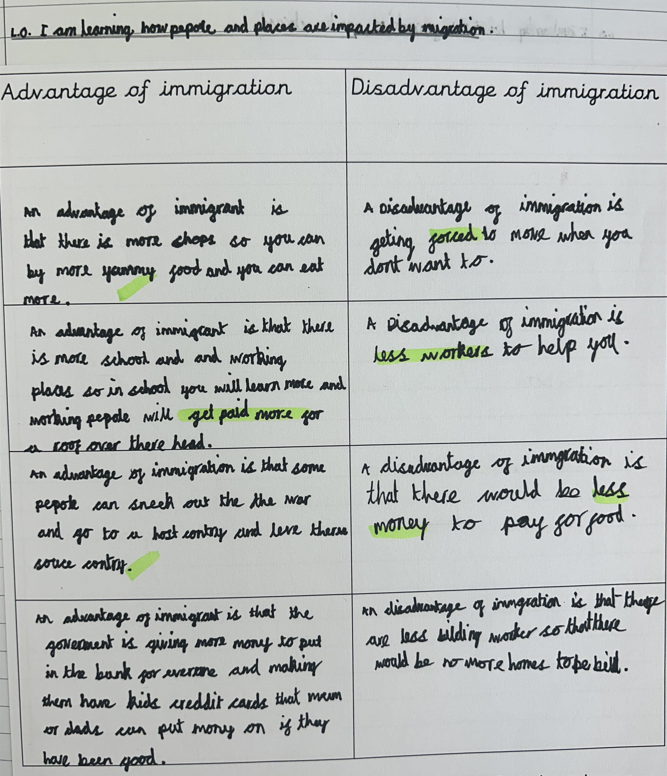 L.O. I am learning how pepole and places are impacted by migration.
Advantage of immigration
Disadvantage of immigration
An advantage of immigrant is
that there is more shops so you can
by more yammy food and you can eat
more.
A Disadvantage of immigration is
geting forced to move when you
dont want to.
An advantage of immigrant is that there
is more school and and working
places so in school you will learn more and
working pepole will get paid more for
a roof over there head.
A Disadvantage of immigration is
less workers to help you.
An advantage of immigration is that some
pepole can sneek out the the war
and go to a host contry and leve
souce contry.
A disadvantage of immgration is
that there would be less
money to pay for food.
An advantage of immigrant is that the
goverment is giving more mony to put
in the bank for and making
them have kids creddit cards that mum
or dads can put mony on if they
have been good.
An disadvantage of immgration is that
are less bilding worker so that there
would be no more homes to be bill.